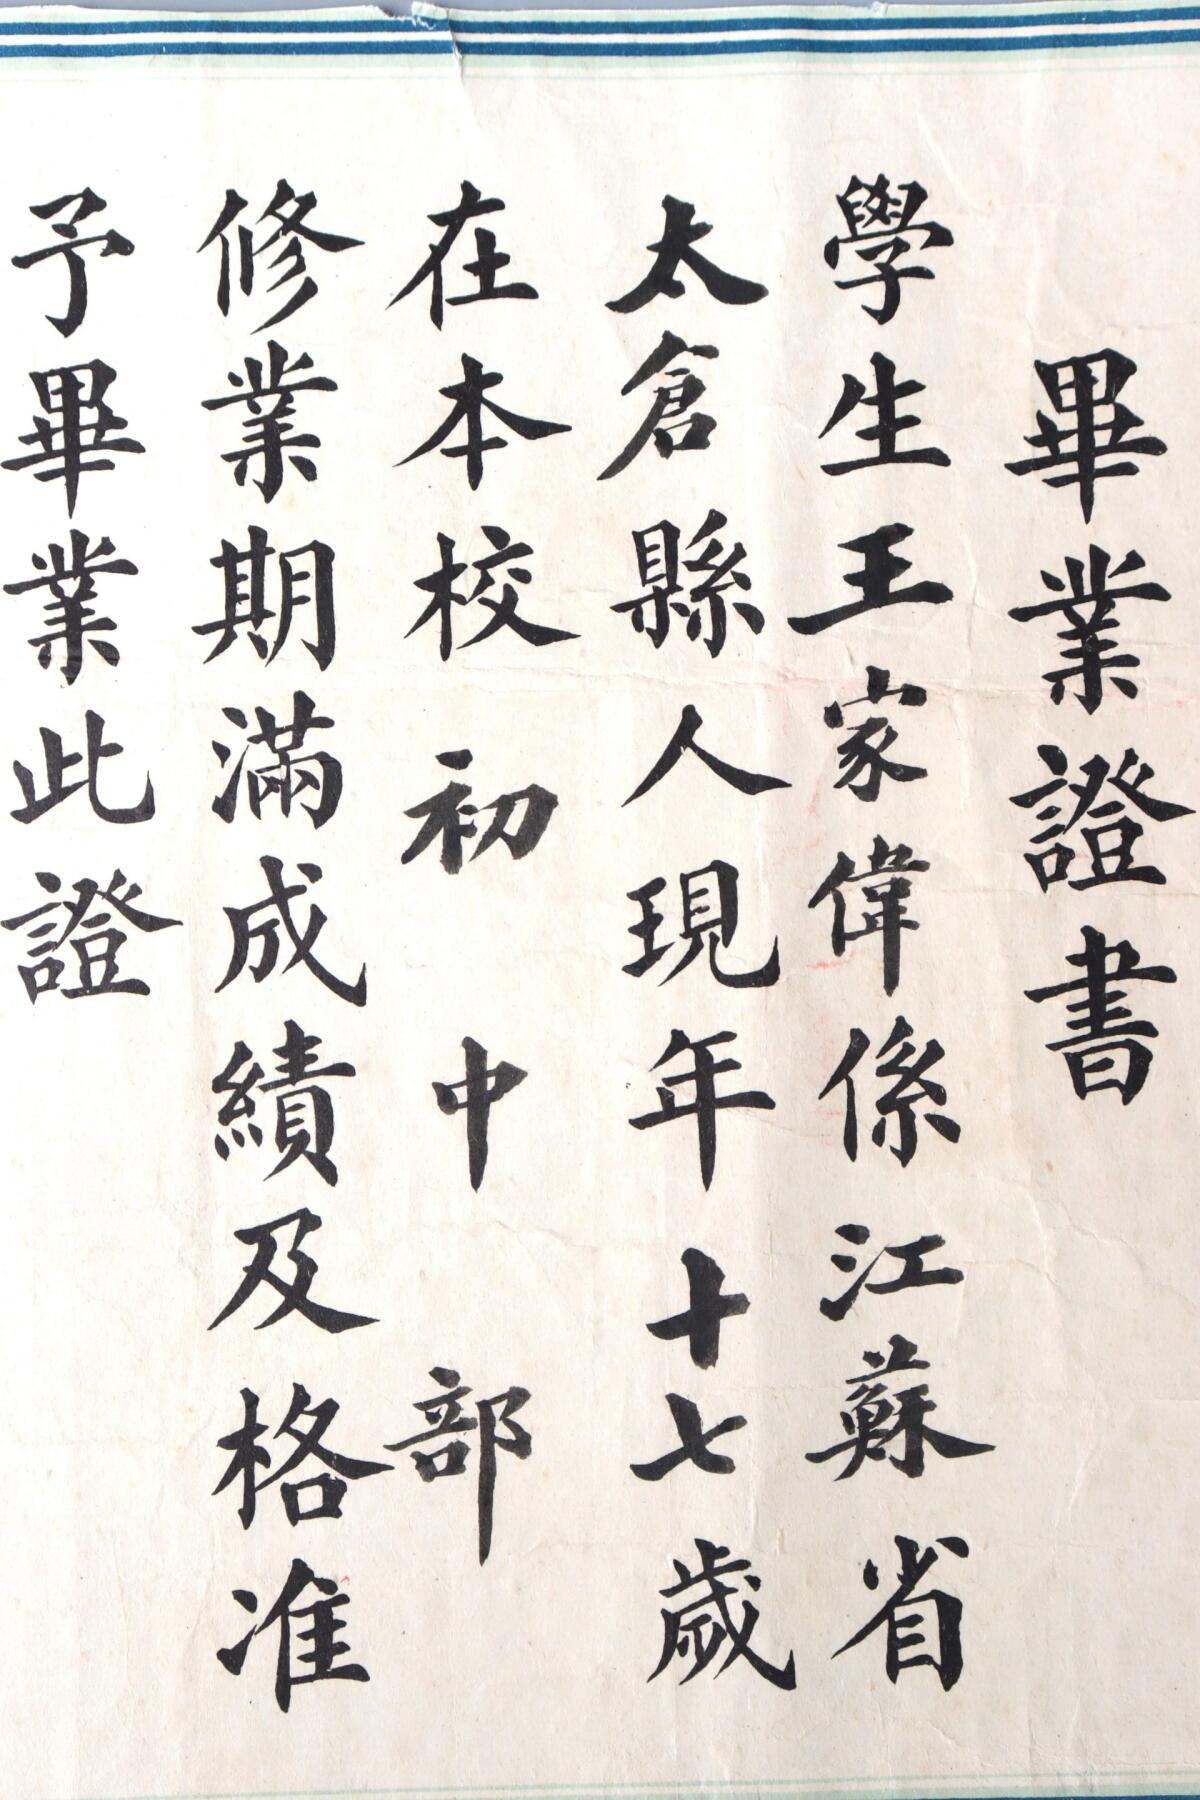 畢業證書
學生王家偉係江蘇省
太倉縣人現年十七歲
在本校初中部
修業期滿成績及格准
予畢業此證